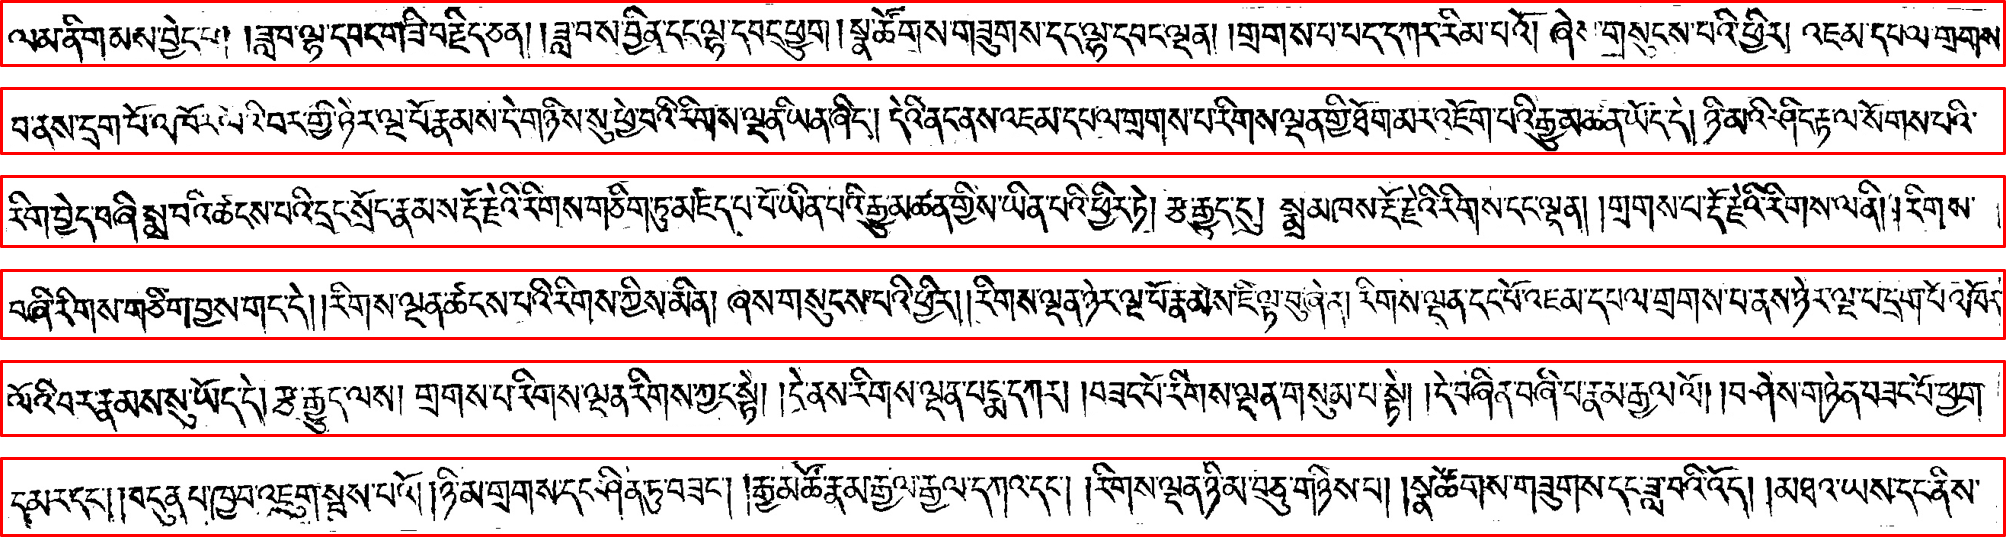 ལམ་ནི་གམས་བྱེད་པ། །ཟླ་བ་ལྟ་དབང་གཟི་བརྗིད་ཅན། །ཟླ་བས་བྱིན་དང་ལྷ་དབང་ཕྱུག །སྣ་ཚོགས་གཟུགས་དང་ལྷ་དབང་ལྡན། །གྲགས་པ་པད་དཀར་རིམ་པའོ། ཞེས་གསུངས་པའི་ཕྱིར། འཇམ་དཔལ་གྲགས
བ་ནས་དྲག་པོ་འཁོར་ལོའི་བར་གྱི་ཉེར་ལྔ་པོ་རྣམས་དེ་གཉིས་སུ་ཕྱེ་བའི་རིགས་ལྡན་ཡིན་ཞིང་། དེའི་ནང་ནས་འཇམ་དཔལ་གྲགས་པ་རིགས་ལྡན་གྱི་ཐོག་མར་འཇོག་པའི་རྒྱུ་མཚན་ཡོད་དེ། ཉི་མའི་ཤིང་རྟ་ལ་སོགས་པའི་
རིག་བྱེད་བཞི་སྨྲ་བའི་ཚངས་པའི་དྲང་སྲོང་རྣམས་རྡོ་རྗེའི་རིགས་གཅིག་ཏུ་མཛད་པ་པོ་ཡིན་པའི་རྒྱུ་མཚན་གྱིས་ཡིན་པའི་ཕྱིར་ཏེ། རྩ་རྒྱུད་དུ། སྨྲ་མཁས་རྡོ་རྗེའི་རིགས་དང་ལྡན། །གྲགས་པ་རྡོ་རྗེའི་རིགས་ལ་ནི། །རིགས་
བཞི་རིགས་གཅིག་བྱས་གང་དེ། །རིགས་ལྡན་ཚངས་པའི་རིགས་ཀྱིས་མིན། ཞས་གསུངས་པའི་ཕྱིར། །རིགས་ལྡན་ཉེར་ལྔ་པོ་རྣམས་ཇི་ལྟ་བུ་ཞེ་ན། རིགས་ལྡན་དང་པོ་འཇམ་དཔལ་གྲགས་པ་ནས་ཉེར་ལྔ་པ་དྲག་པོ་འཁོར
ལོའི་བར་རྣམས་སུ་ཡོད་དེ། རྩ་རྒྱུད་ལས། གྲགས་པ་རིགས་ལྡན་རིགས་ཀྱང་སྟེ། །དེ་ནས་རིགས་ལྡན་པདྨ་དཀར། །བཟང་པོ་རིགས་ལྡན་གསུམ་པ་སྟེ། །དེ་བཞིན་བཞི་པ་རྣམ་རྒྱལ་ལོ། །བ་ཤེས་གཉེན་བཟང་པོ་ཕྱག
དམར་དང་། །བདུན་པ་ཁྱབ་འཇུག་སྦས་པ་ལོ། །ཉི་མ་གྲགས་དང་ཤིན་ཏུ་བཟང་། །རྒྱ་མཚོ་རྣམ་རྒྱལ་རྒྱལ་དཀའ་དང་། །རིགས་ལྡན་ཉི་མ་བཅུ་གཉིས་པ། །སྣ་ཚོགས་གཟུགས་དང་ཟླ་བའི་འོད། །མཐའ་ཡས་དང་ནི་ས་